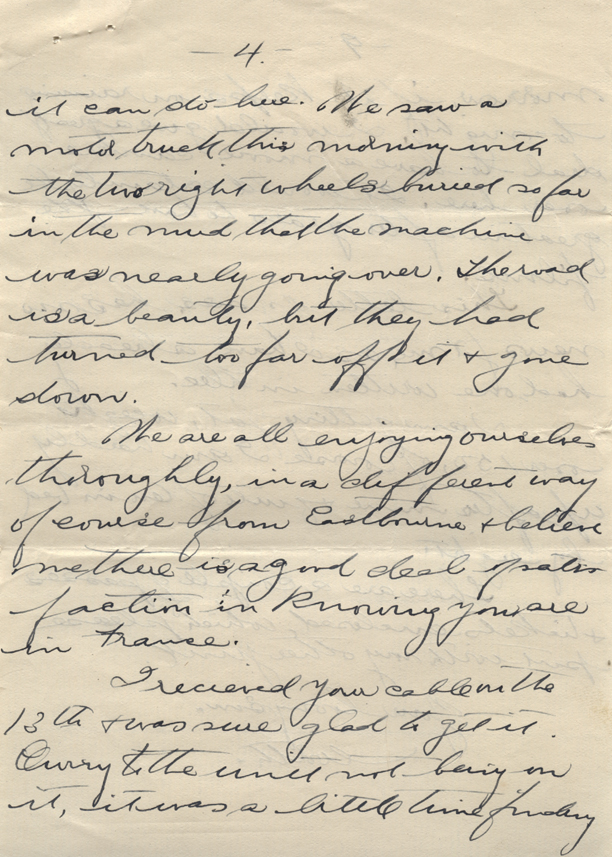 — 4. —
it can do here. We saw a
motor truck this morning with
the two right wheels buried so far
in the mud that the machine
was nearly going over. The road
is a beauty, but they had
turned too far off it + gone
down.
We are all enjoying ourselves
thoroughly, in a different way
of course from Eastbourne + believe
me there is a good deal of satis
faction in knowing you are
in France.
I recieved your cable on the
13th + was sure glad to get it.
Owing to the unit not being on
it, it was a little time finding